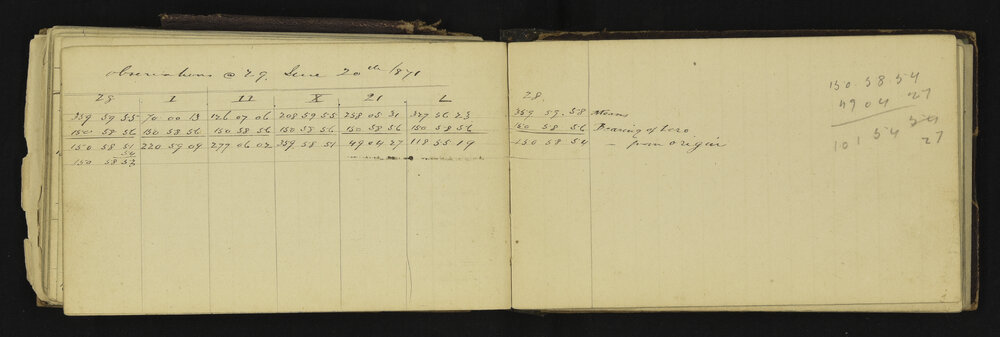 Observations @ 29. June 20th 1871
28 I II X 21 L
359 59 55 70 00 13 126 07 06 208 59 55 258 05 31 327 56 23
150 58 56 150 58 56 150 58 56 150 58 56 150 58 56 150 58 56
150 58 51 220 59 09 277 06 02 359 58 51 49 04 27 118 55 19
54
150 58 52
28.
359 59 58 Means
150 58 56 Bearing of Zero
150 58 54 – from origin
150 58 54
49 04 27
101 54 27